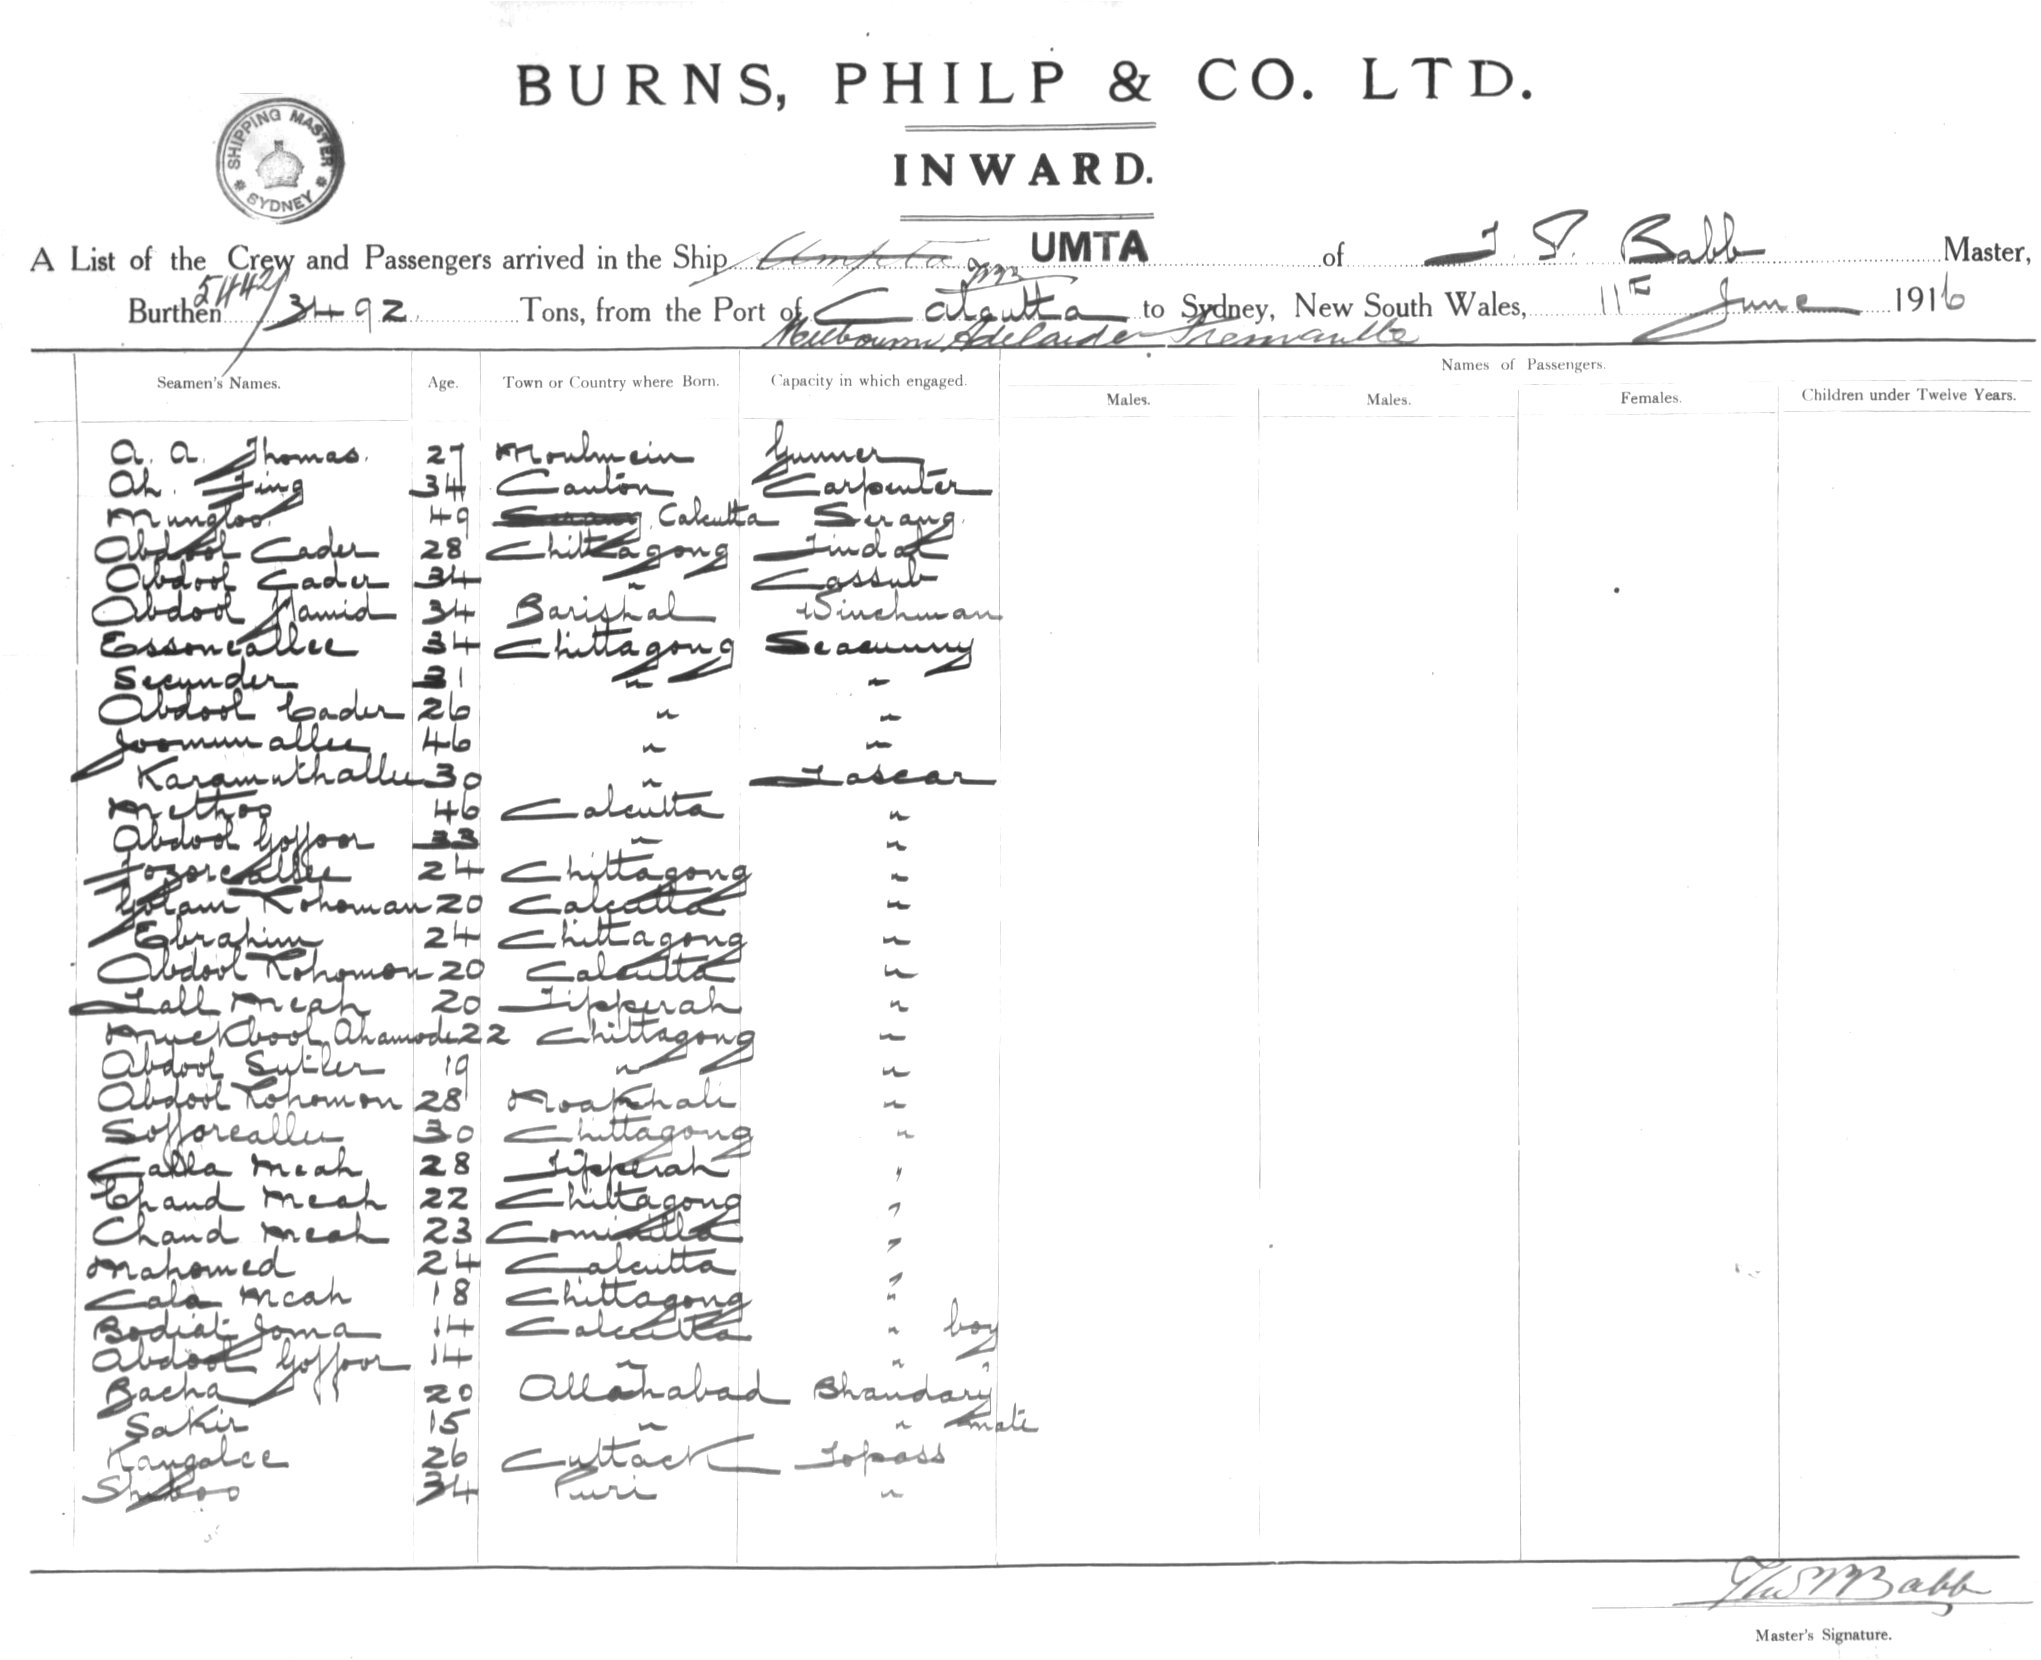 BURNS, PHILP & CO. LTD.
SHIPPING MASTER SYDNEY
INWARD.
A List of the Crew and Passengers arrived in the Ship Umpta UMTA of T. P. Babb Master,
Burthen 5442/3492 Tons, from the Port of Calcutta to Sydney, New South Wales, 11th June 1916
Melbourne Adelaide Fremantle
Seamen's Names. Age. Town or Country where Born. Capacity in which engaged. Names of Passengers.
Males. Males. Females. Children under Twelve Years.
A. A. Thomas. 27 Moulmein Gunner
Ah. Fing 34 Canton Carpenter
Mungloo 49 Serang Calcutta Serang.
Abdool Cader 28 Chittagong Tindal
Abdool Cader 34 " Cassub
Abdool Hamid 34 Barishal Winchman
Essoneallee 34 Chittagong Seacunny
Secunder 31 " "
Abdool Cader 26 " "
Joomunallee 46 " "
Karamuthallee 30 " Lascar
Methoo 46 Calcutta "
Abdool Goffoor 33 " "
Fozoreallee 24 Chittagong "
Golam Rohoman 20 Calcutta "
Ebrahim 24 Chittagong "
Abdool Rohomon 20 Calcutta "
Lall Meah 20 Tipperah "
Muckbool Ahamode 22 Chittagong "
Abdool Sutler 19 " "
Abdool Rohomon 28 Noakhali "
Sofforeallee 30 Chittagong "
Calla Meah 28 Tipperah "
Chand Meah 22 Chittagong "
Chand Meah 23 Comilla "
Mahomed 24 Calcutta "
Cala Meah 18 Chittagong "
Bodiat Joma 14 Calcutta " boy
Abdool Goffoor 14 " " "
Bacha 20 Allahabad Bhandary
Sakir 15 " " mate
Kangalee 26 Cuttack Topass
Shiboo 34 Puri "
Thos M Babb
Master's Signature.